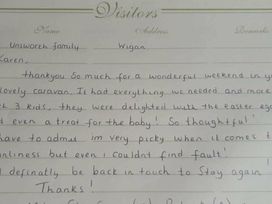 Visitors
Name Address Remarks
Unsworth family Wigan
Karen,
thankyou so much for a wonderful weekend in yo
lovely caravan. It had everything we needed and more
3 kids, they were delighted with the easter egg
even a treat for the baby! So thoughtful!
have to admit im very picky when it comes t
nliness but even i couldnt find fault!
definatly be back in touch to stay again
Thanks!